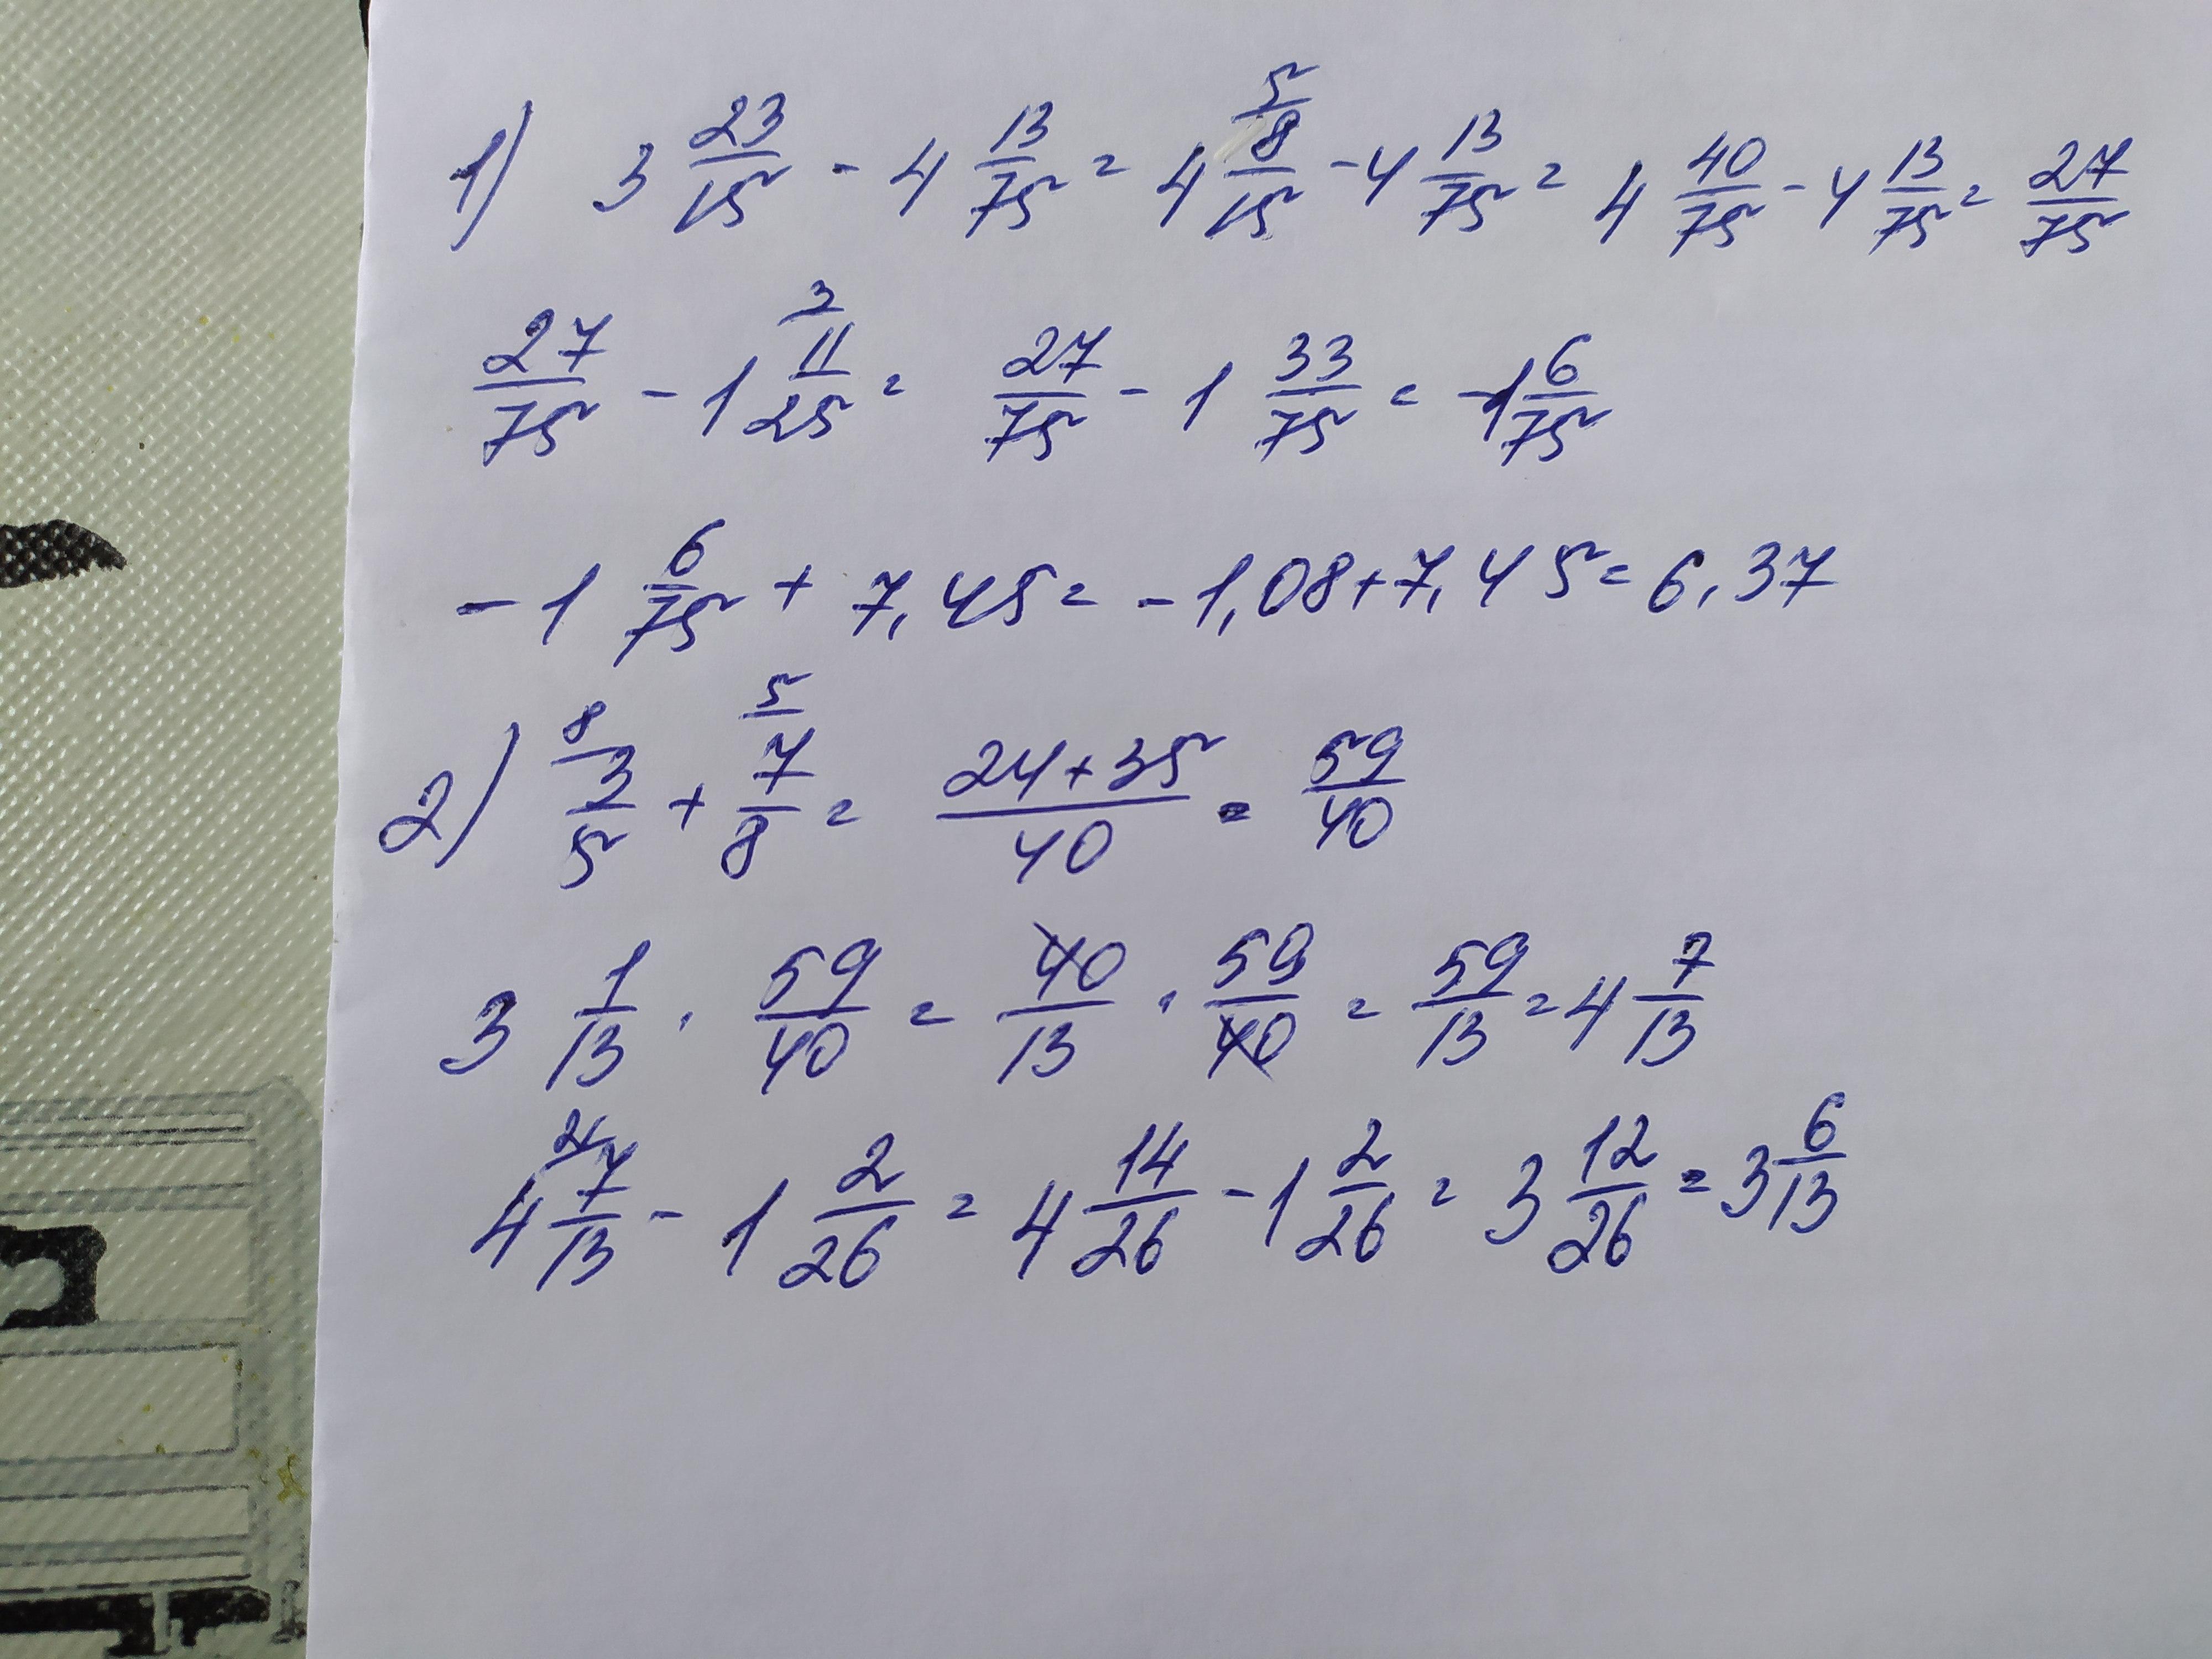 1) 3 23/15 - 4 13/75 = 4 8/15 (5) - 4 13/75 = 4 40/75 - 4 13/75 = 27/75
27/75 - 1 11/25 (3) = 27/75 - 1 33/75 = -1 6/75
-1 6/75 + 7,45 = -1,08 + 7,45 = 6,37
2) 3/5 (8) + 7/8 (5) = (24+35)/40 = 59/40
3 1/13 · 59/40 = 40/13 · 59/40 = 59/13 = 4 7/13
4 7/13 (2) - 1 2/26 = 4 14/26 - 1 2/26 = 3 12/26 = 3 6/13